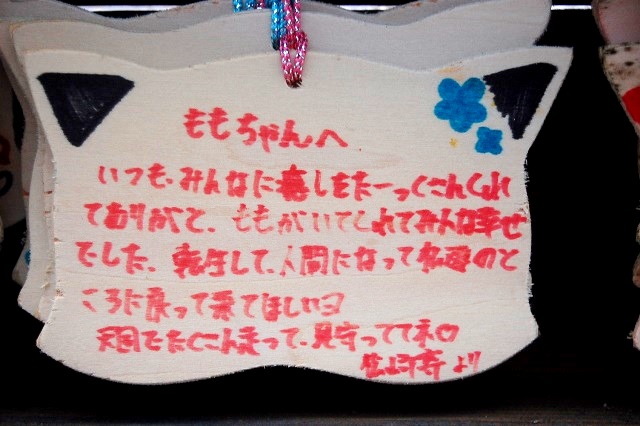 ももちゃんへ
いつも、みんなに癒しをたーっくさんくれ
てありがと、ももがいてくれてみんな幸せ
でした、転生して、人間になって私達のと
ころに戻って来てほしいヨ
天国でたくさん走って、見守っててネ
より